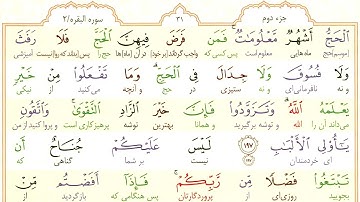 جزء دوم ۳۱ سوره البقره/۲
الْحَجُّ أَشْهُرٌ مَعْلُومَاتٌ فَمَنْ فَرَضَ فِيهِنَّ الْحَجَّ فَلَا رَفَثَ
ماه هایی معلوم است پس کسی که واجب گرداند(بر خود) در آن (ماه)ها حج پس(بداند که روا) نیست آمیزشی
وَلَا فُسُوقَ وَلَا جِدَالَ فِي الْحَجِّ وَمَا تَفْعَلُوا مِنْ خَيْرٍ
و نه نافرمانی‌ای و نه ستیزی در حج و آنچه می‌کنید از نیکی
يَعْلَمْهُ اللَّهُ وَتَزَوَّدُوا فَإِنَّ خَيْرَ الزَّادِ التَّقْوَىٰ وَاتَّقُونِ
می‌داند آن را خدا و توشه برگیرید و همانا بهترین توشه پرهیزکاری است و پروا کنید از من
يَا أُولِي الْأَلْبَابِ ۱۹۷ لَيْسَ عَلَيْكُمْ جُنَاحٌ أَنْ
ای خردمندان ۱۹۷ نیست بر شما گناهی که
تَبْتَغُوا فَضْلًا مِنْ رَبِّكُمْ فَإِذَا أَفَضْتُمْ مِنْ
بجویید روزی‌ای از پروردگارتان پس هنگامی که بازگردید از